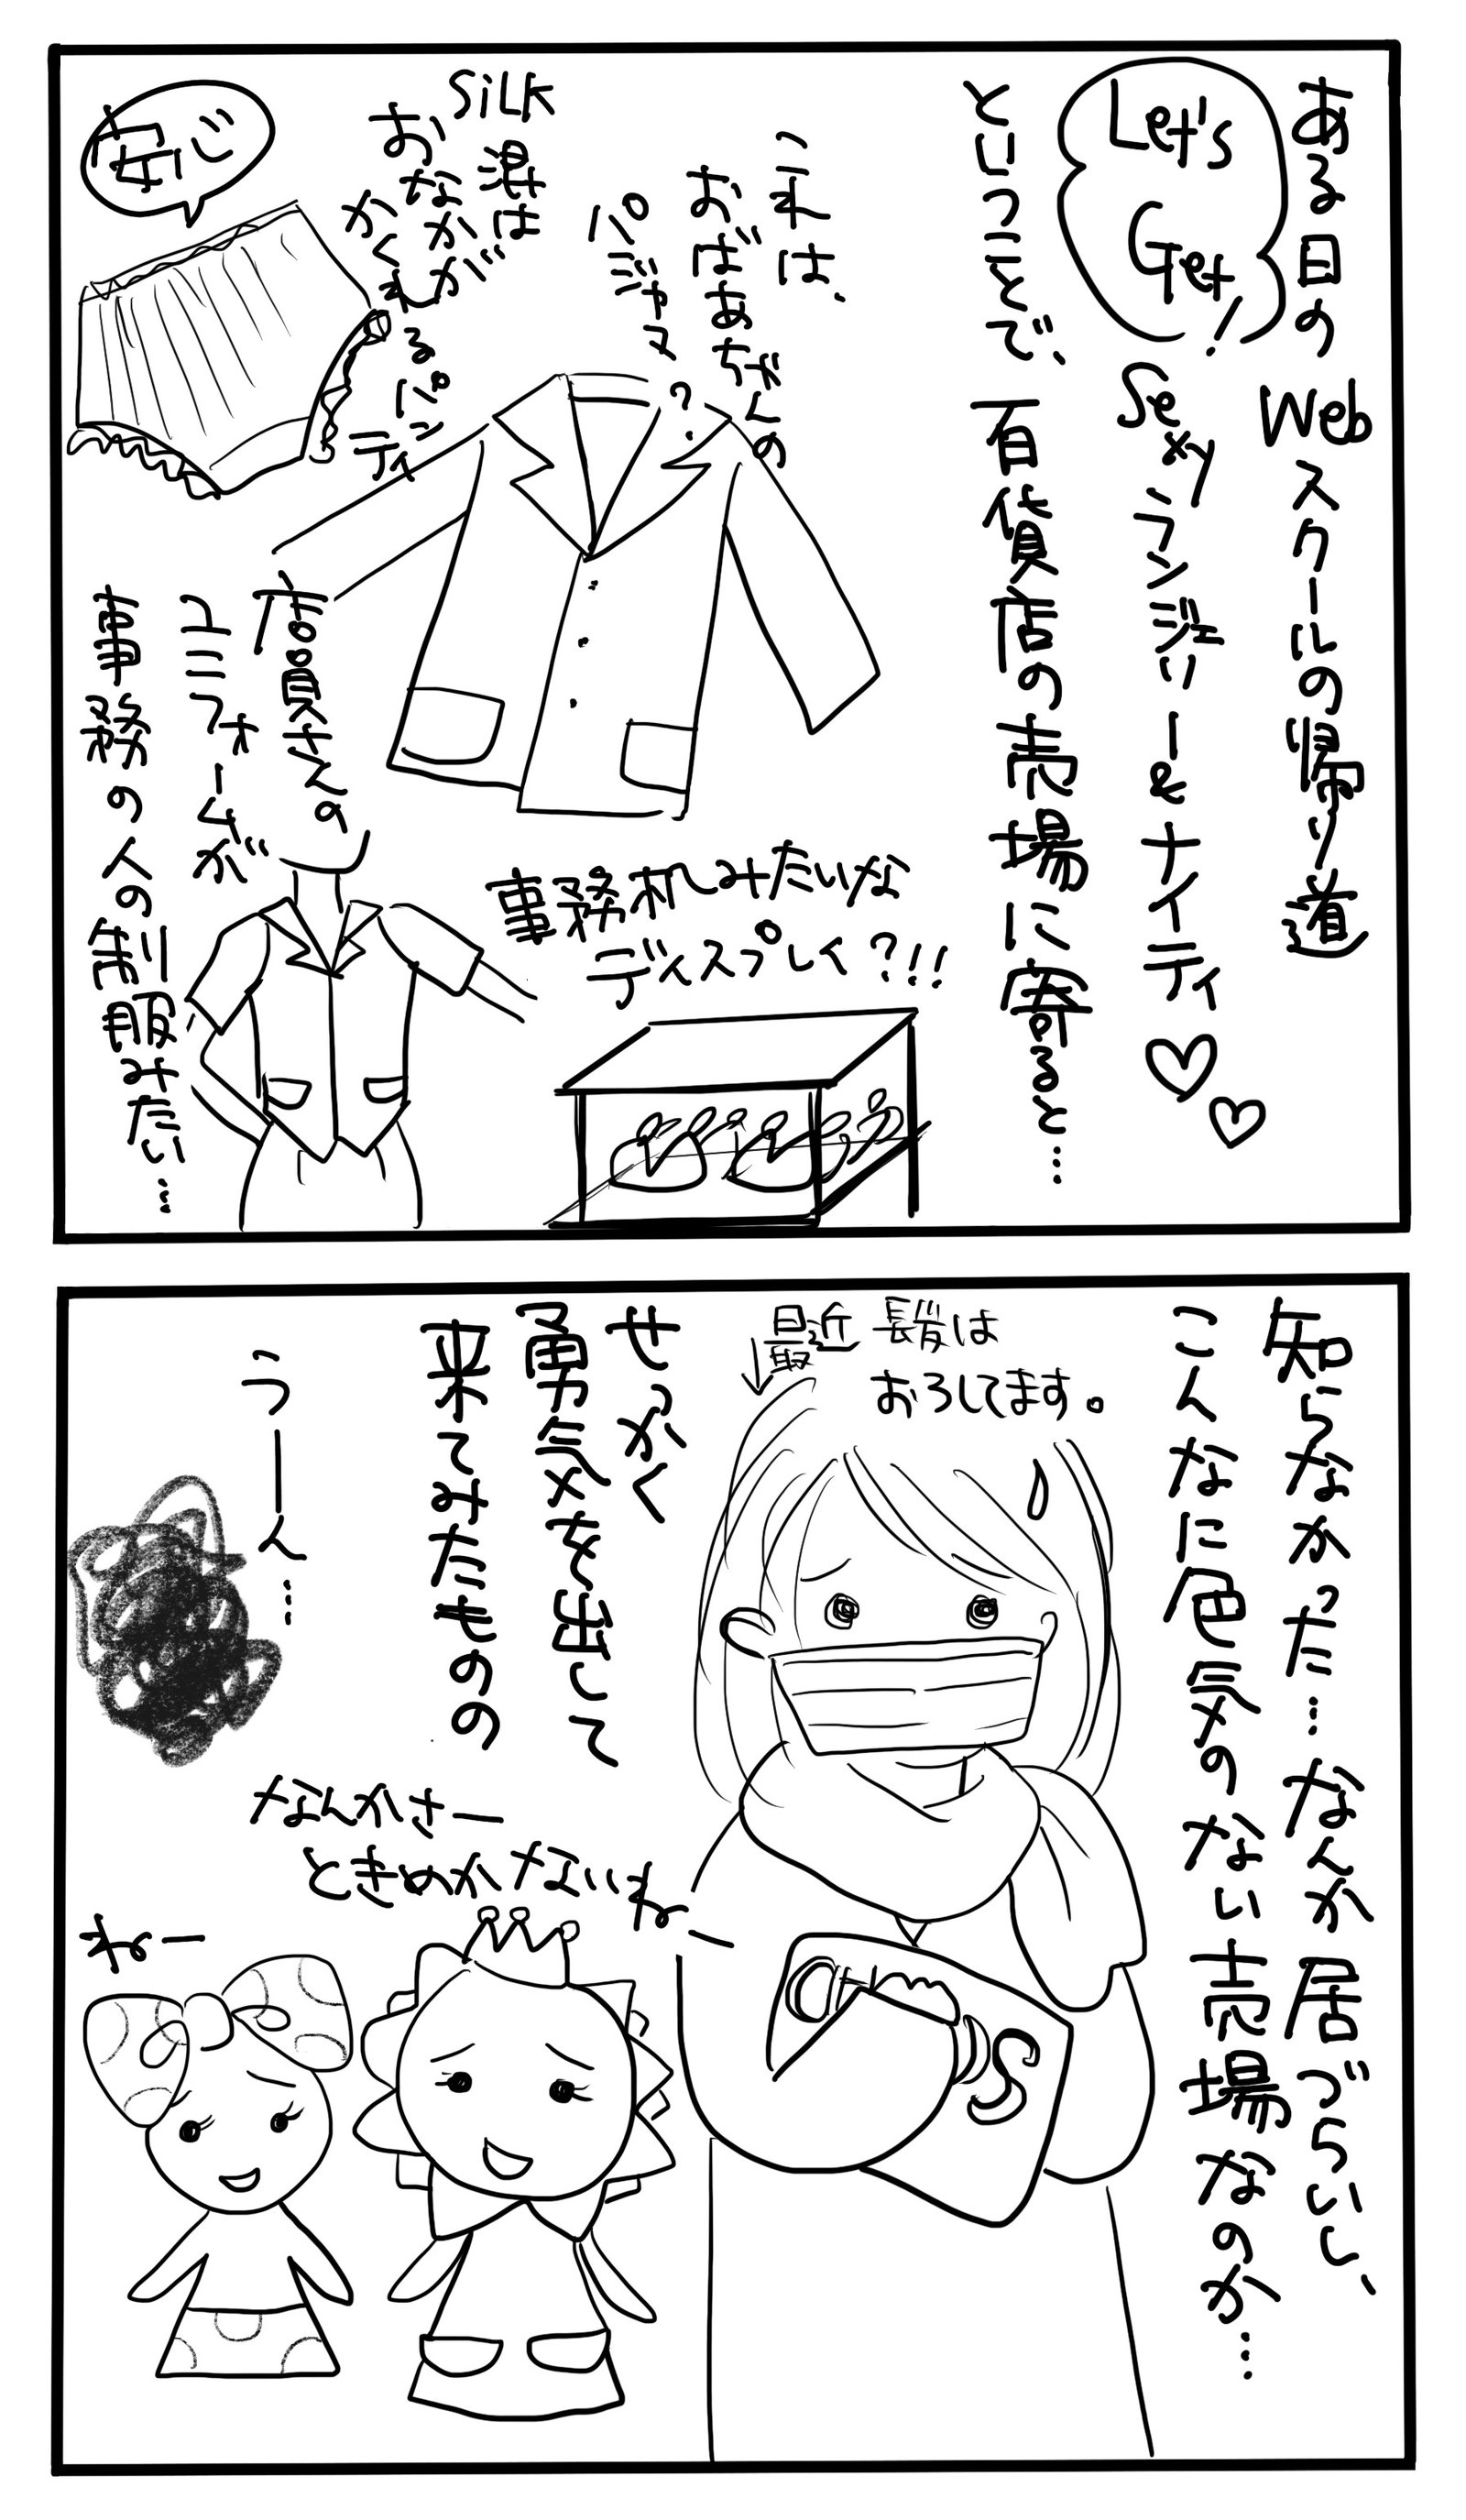 ある日のWebスクールの帰り道
Let's
Get!
Sexyランジェリー&ナイティ♡♡
ということで、百貨店の売場に寄ると…
これは、
おばあちゃんの
パジャマ?
SiLK
混は
おなかが
かくれるパン
ティ
事務机みたいな
ディスプレイ?!!
店員さんの
ユニフォームが
事務の人の制服みたい…
知らなかった…なんか居づらいし、
こんなに色気のない売場なのか…
最近 長背は
おろしてます。
せっかく
勇気を出して
来てみたものの
うーーん…
なんかさー
ときめかないねー
ねー